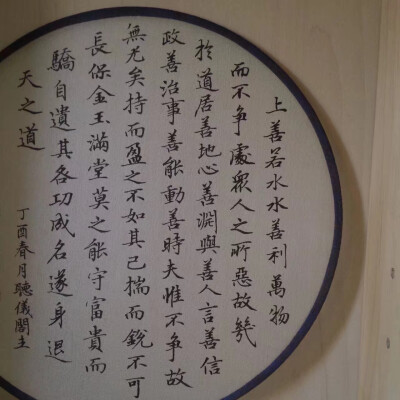 上善若水水善利萬物
而不争處眾人之所惡故幾
於道居善地心善淵與善人言善信
政善治事善能動善時夫惟不爭故
無尤矣持而盈之不如其已揣而銳不可
長保金玉滿堂莫之能守富貴而
驕自遺其咎功成名遂身退
天之道
丁酉春月聽儀閣主